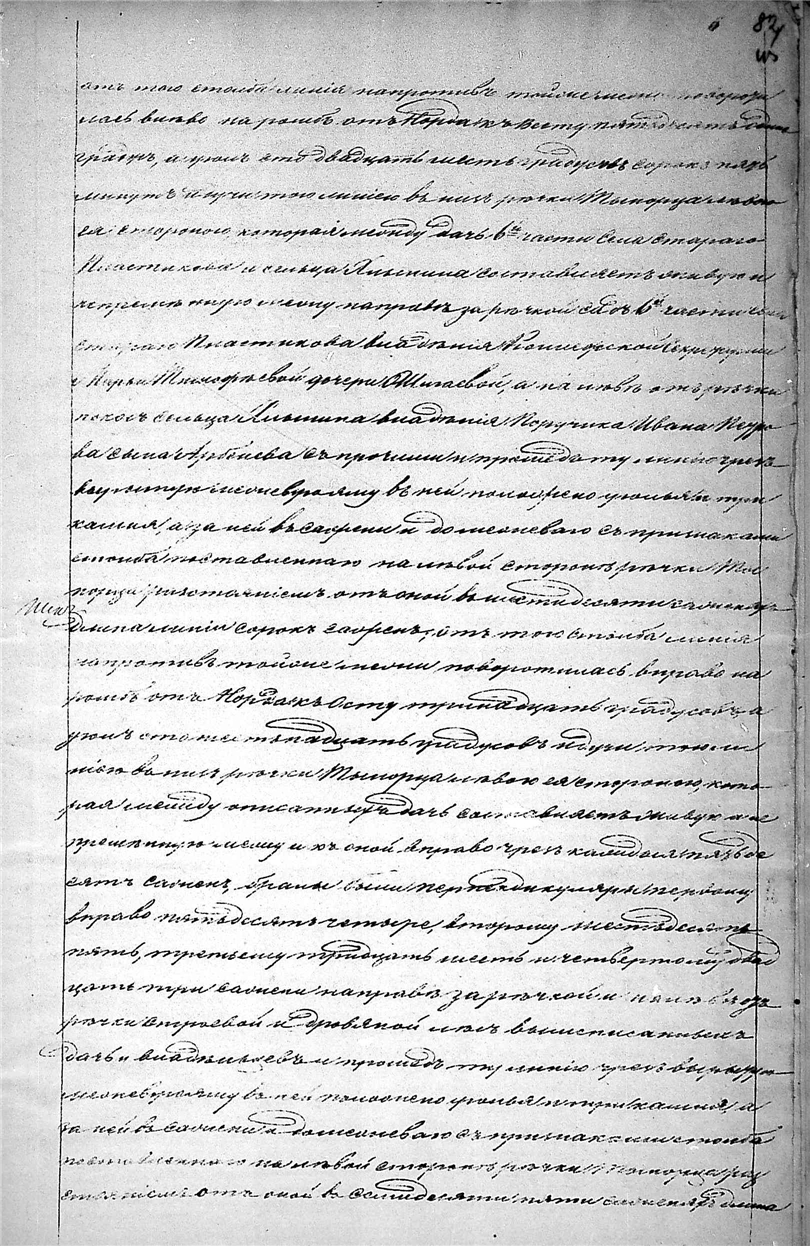 82
отъ того столба линія напротивъ тойже межи поворотилась
лась влѣво на ромбъ отъ Норда къ Весту пятдесятъ одинъ
градусъ, а уголъ сто двадцать шесть градусовъ сорокъ пять
минутъ идучи тою линіею въ низъ рѣчки Тысорца лѣвою
ея стороною, которая между дачь 6й части села стараго
Пластикова и сельца Ялынина составляетъ живую и
непремѣнную межу направѣ за рѣчкой сѣдъ 6й части села
стараго Пластикова владѣнія Секретарши
Марьи Тимофѣевой дочери Шишаевой, а налѣвѣ отъ рѣчки
покосъ сельца Ялынина владѣнія Поручика Ивана Петро
ва сына съ прочими и прошедъ ту линію чрезъ
вырытую межевую яму въ ней положено уголья и три
камня, а за ней въ сажени и до межеваго съ признаками
столба поставленнаго на лѣвой сторонѣ рѣчки Ты
сорца разстояніемъ отъ оной въ шестидесяти саженяхъ
длина линіи сорокъ саженъ; отъ того столба линія
напротивъ тойже межи поворотилась вправо на
ромбъ отъ Норда къ Осту тринадцать градусовъ а
уголъ сто шестнадцать градусовъ идучи тою ли
ніею въ низъ рѣчки Тысорца лѣвою ея стороною, кото
рая между описанныхъ дачь составляетъ живую и не
премѣнную межу и къ оной вправо чрезъ каждыя пятьде
сятъ саженъ, браны были перпендикуляры первому
вправо пятьдесятъ четыре, второму шестьдесятъ
пять, третьему тридцать шесть и четвертому двад
цать три сажени направѣ за рѣчкой и налѣвѣ отъ
рѣчки строевой и дровяной лѣсъ вышеписанныхъ
дачь и владѣльцевъ и прошедъ ту линію чрезъ вырытую
межевую яму въ ней положено уголья и три камня, а
за ней въ сажени и до межеваго съ признаками столба
поставленнаго на лѣвой сторонѣ рѣчки Тысорца раз
стояніемъ отъ оной въ семидесяти пяти саженяхъ длина